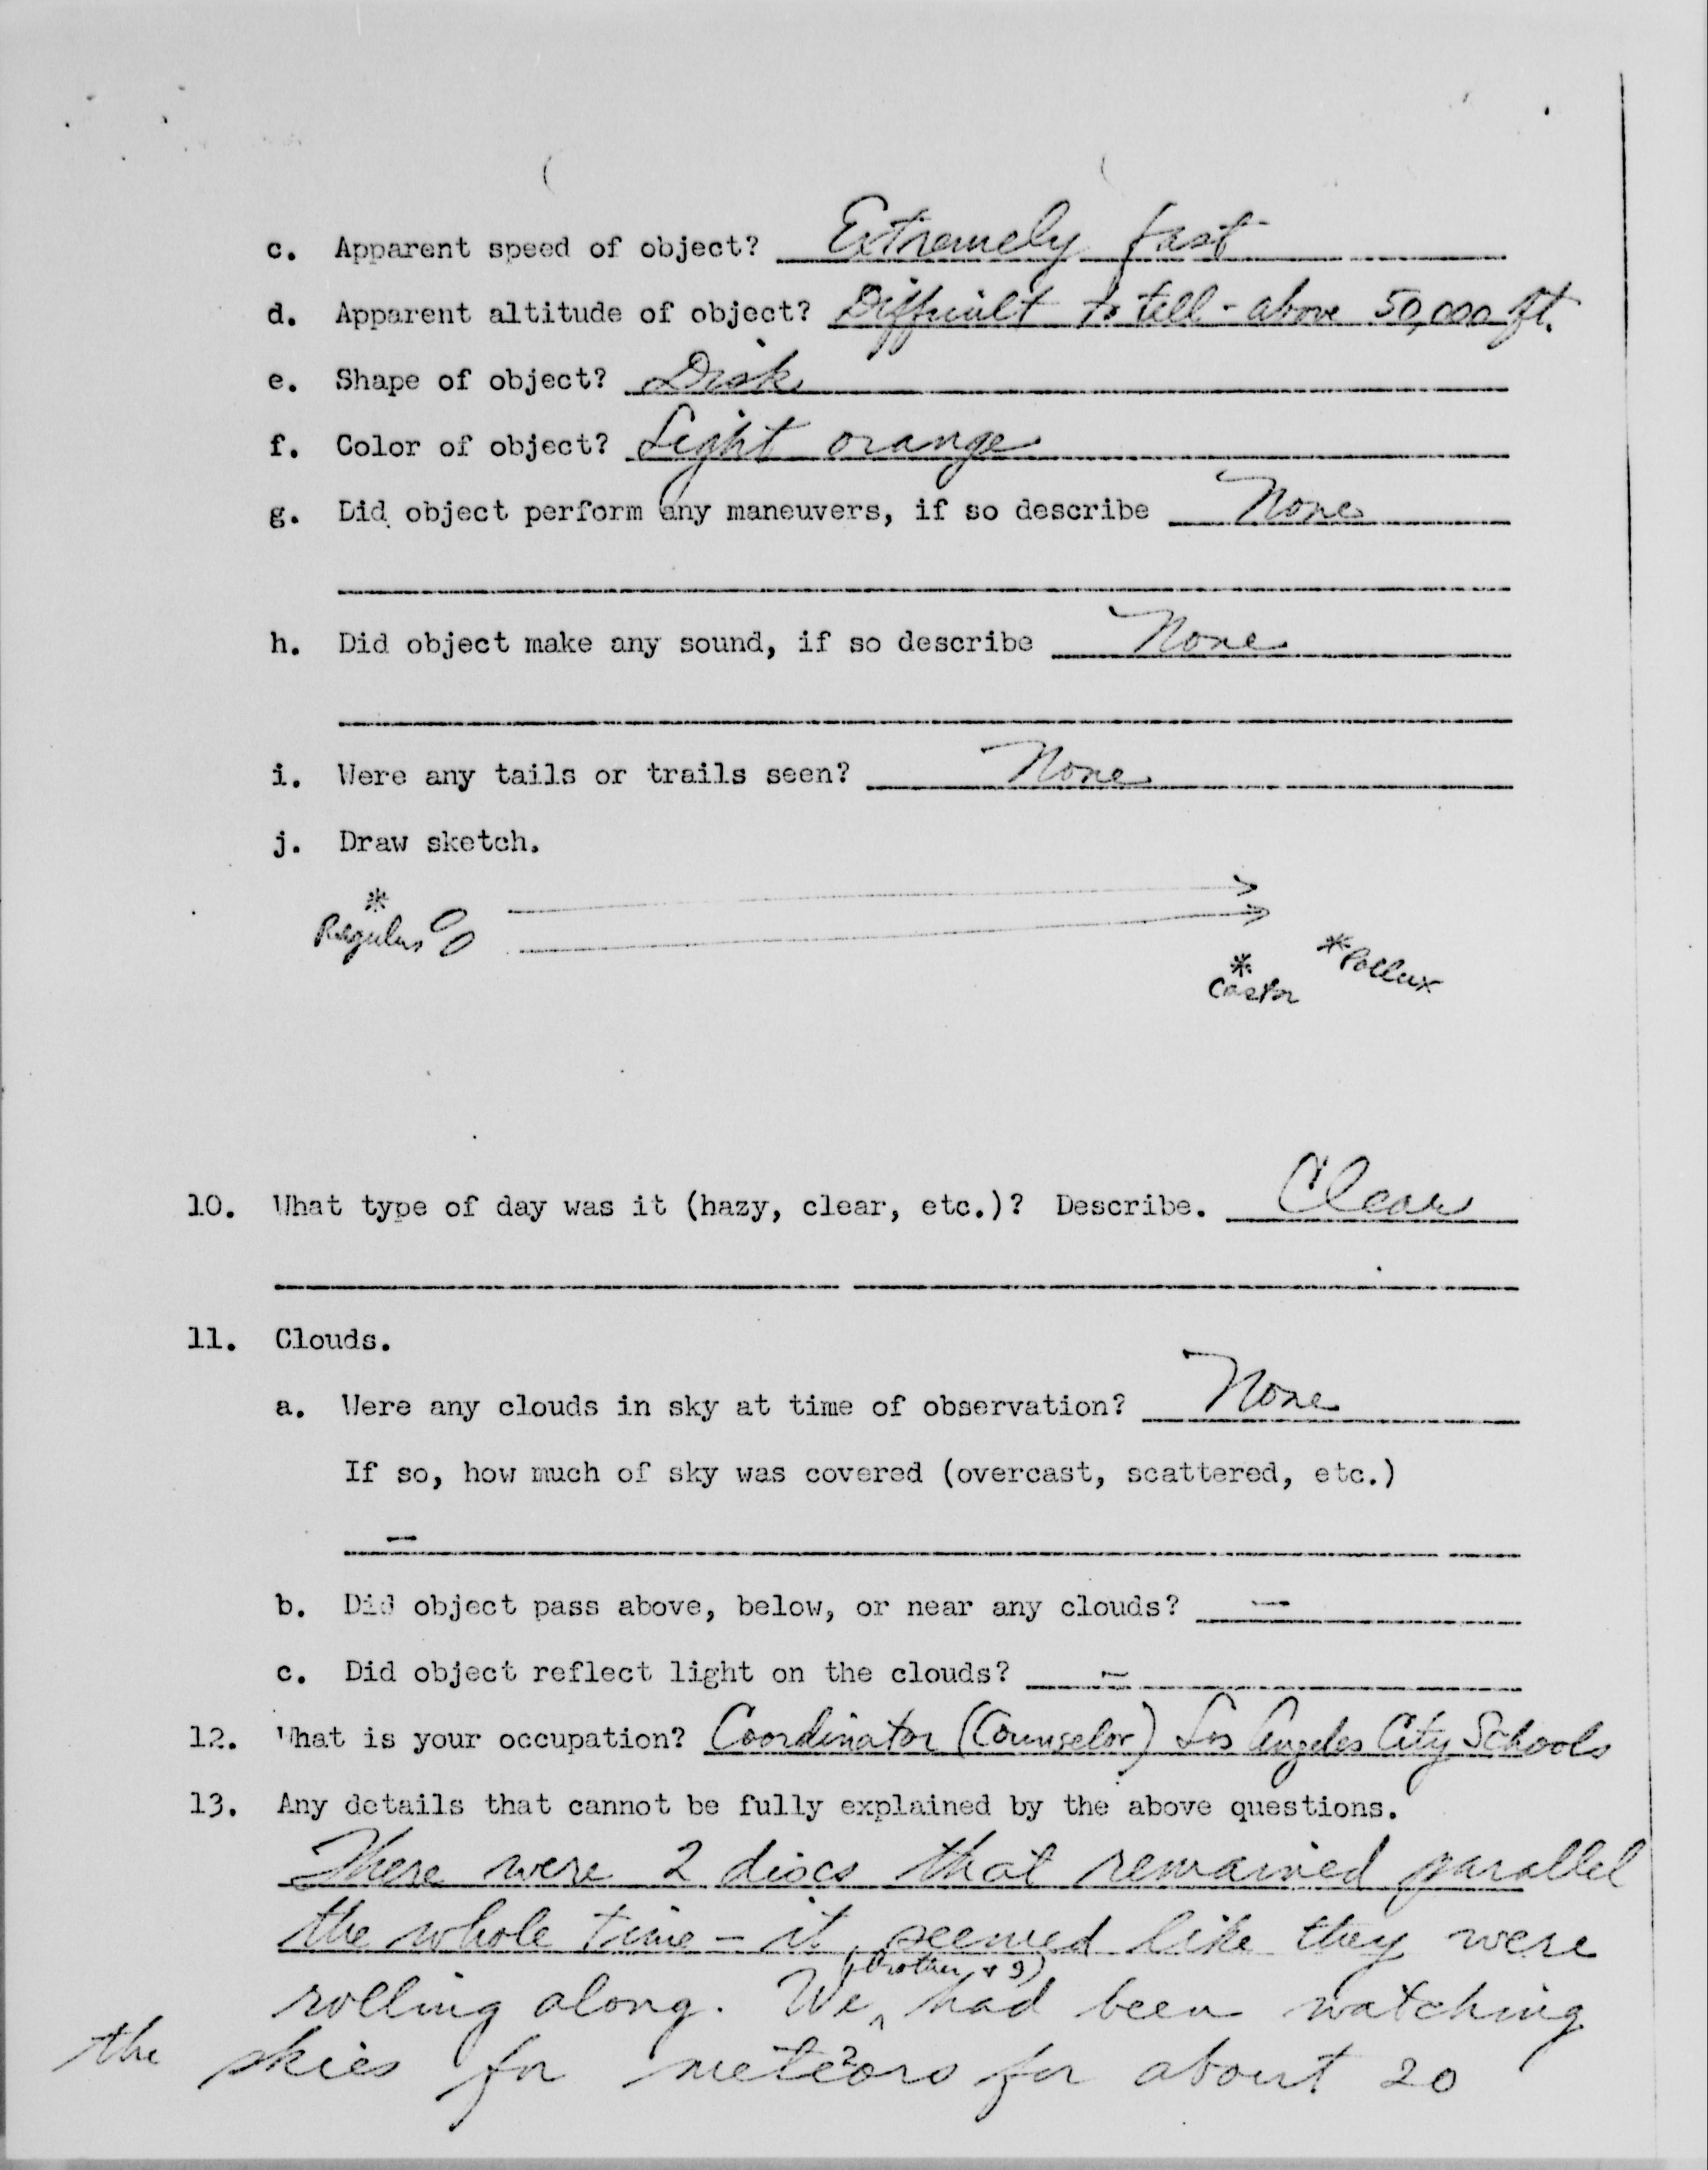 c. Apparent speed of object? Extremely fast
d. Apparent altitude of object? Difficult to tell - above 50,000 ft.
e. Shape of object? Disk
f. Color of object? Light orange
g. Did object perform any maneuvers, if so describe None
h. Did object make any sound, if so describe None
i. Were any tails or trails seen? None
j. Draw sketch.
Regulus
Pollux
Castor
10. What type of day was it (hazy, clear, etc.)? Describe. Clear
11. Clouds.
a. Were any clouds in sky at time of observation? None
If so, how much of sky was covered (overcast, scattered, etc.)
—
b. Did object pass above, below, or near any clouds? —
c. Did object reflect light on the clouds? —
12. What is your occupation? Coordinator (Counselor) Los Angeles City Schools
13. Any details that cannot be fully explained by the above questions.
There were 2 discs that remained parallel
the whole time - it seemed like they were
(brother & I)
rolling along. We ^ had been watching
the skies for meteors for about 20